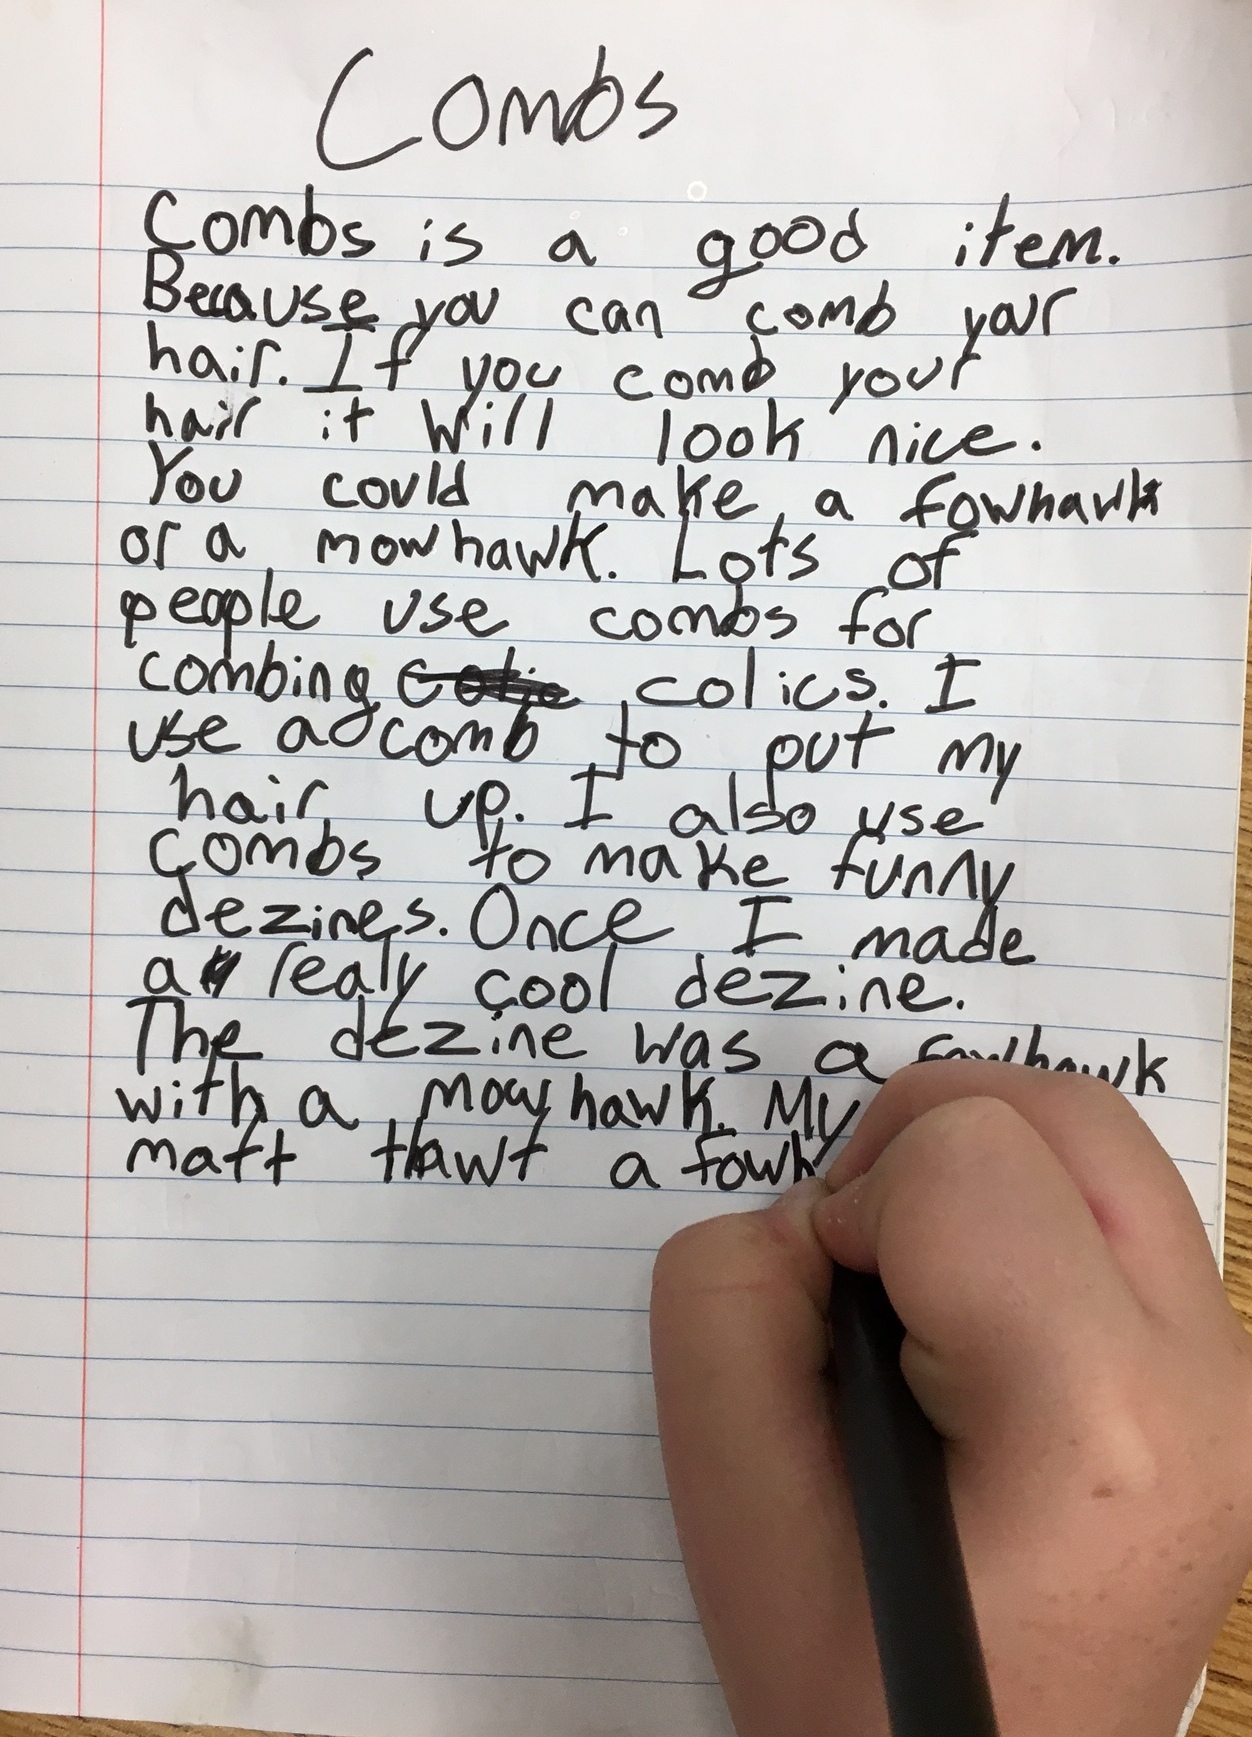 Combs
Combs is a good item.
Because you can comb your
hair. If you comb your
hair it will look nice.
You could make a fowhawk
or a mowhawk. Lots of
people use combs for
combing colics. I
use a comb to put my
hair up. I also use
combs to make funny
dezines. Once I made
a realy cool dezine.
The dezine was a fowhawk
with a mowhawk. My
matt thawt a fowh